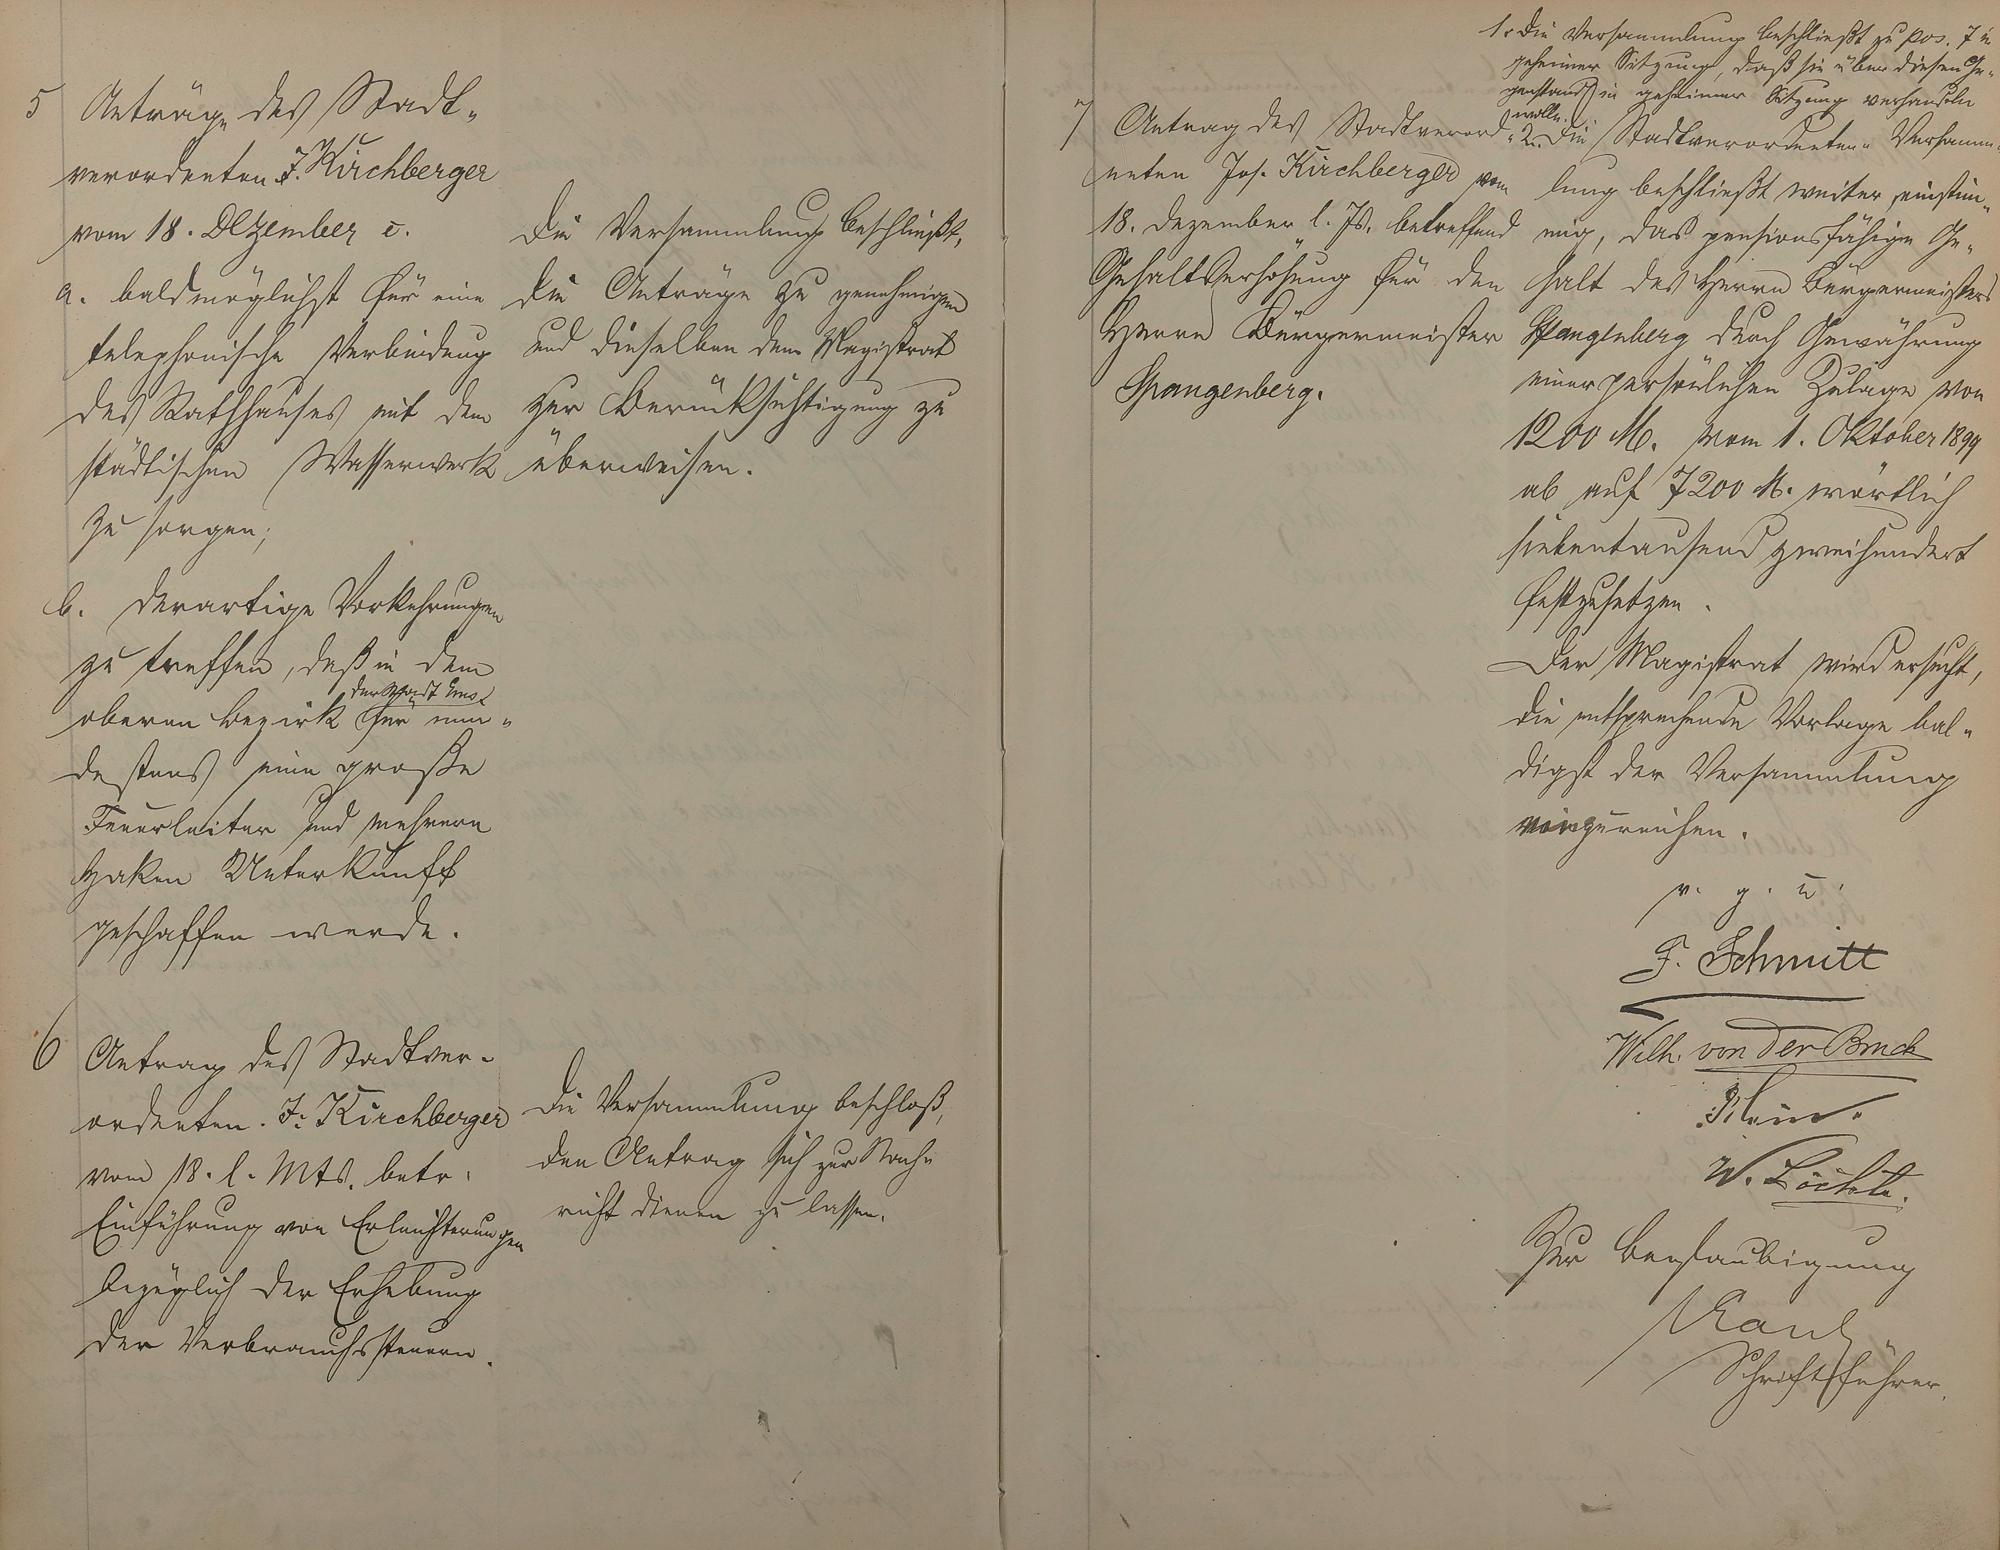 5 Anträge des Stadt-
verordneten J. Kirchberger
vom 18. Dezember c.
a. baldmöglichst für eine
telephonische Verbindung
des Rathhauses mit dem
städtischen Wasserwerk
zu sorgen;
b. derartige Vorkehrungen
zu treffen, daß in dem
oberen Bezirk der Stadt Ems für min-
destens eine große
Feuerleiter und mehrere
Haken Unterkunft
geschaffen werde.
Die Versammlung beschließt,
die Anträge zu genehmigen
und dieselben dem Magistrat
zur Berücksichtigung zu
überweisen.
6 Antrag des Stadtver-
ordneten J. Kirchberger
vom 18. l. Mts. betr.
Einführung von Erleichterungen
bezüglich der Erhebung
der Verbrauchssteuern.
Die Versammlung beschloß,
den Antrag sich zur Nach-
richt dienen zu lassen.
7 Antrag des Stadtverord-
neten Jos. Kirchberger vom
18. Dezember l. Js. betreffend
Gehaltserhöhung für den
Herrn Bürgermeister
Spangenberg.
1. Die Versammlung beschließt zu pos. 7 in
geheimer Sitzung, daß sie über diesen Ge-
genstand in geheimer Sitzung verhandeln
wolle.
2. Die Stadtverordneten-Versamm-
lung beschließt weiter einstim-
mig, das pensionsfähige Ge-
halt des Herrn Bürgermeisters
Spangenberg durch Gewährung
einer persönlichen Zulage von
1200 M. vom 1. Oktober 1899
ab auf 7200 M. wörtlich
siebentausend zweihundert
festzusetzen.
Der Magistrat wird ersucht,
die entsprechende Vorlage bal-
digst der Versammlung
einzureichen.
v. g. u.
F. Schmitt
Wilh. von der Bruck
Klein.
W. Löchte.
Zur Beglaubigung
Schriftführer.